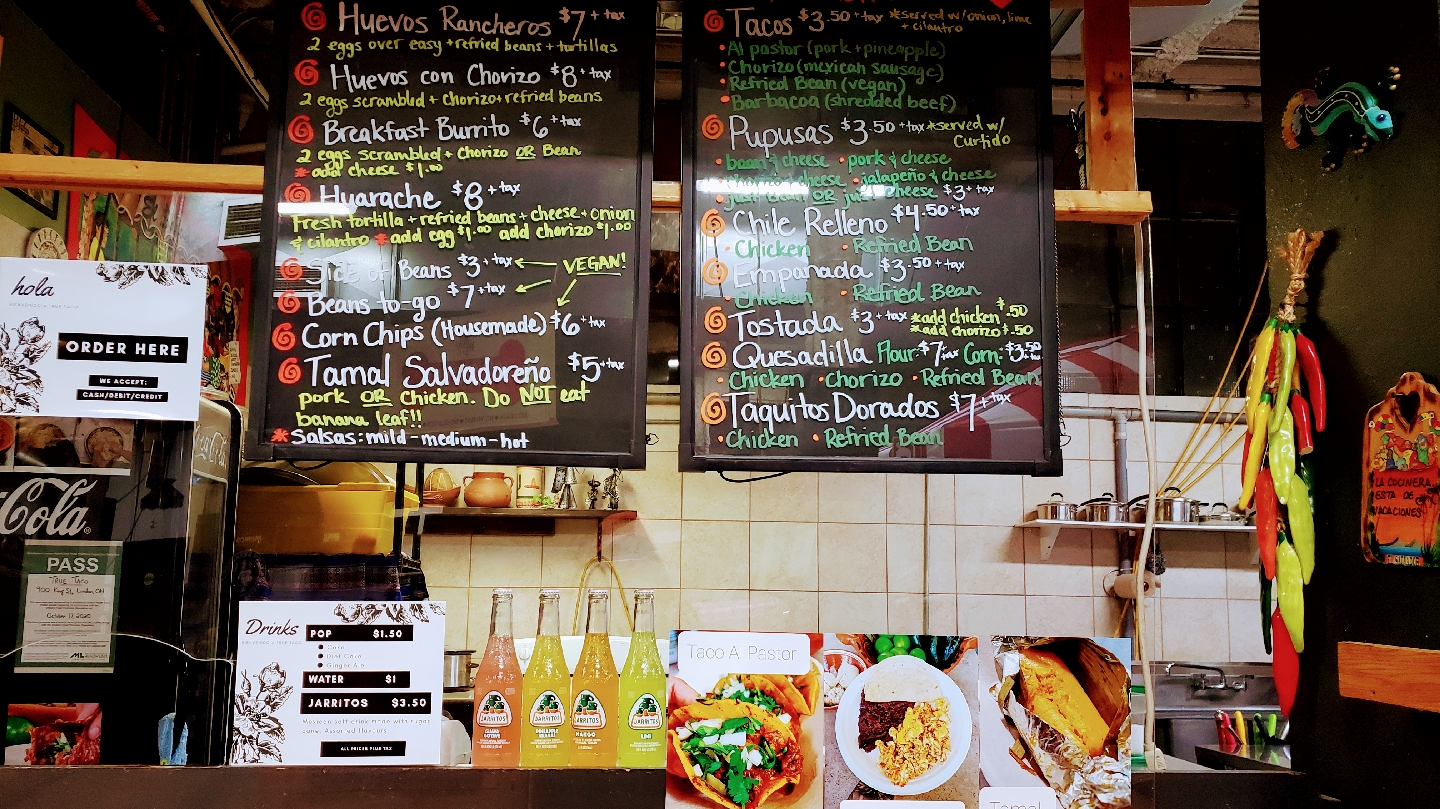 Huevos Rancheros $7 + tax
2 eggs over easy + refried beans + tortillas
Huevos con Chorizo $8 + tax
2 eggs scrambled + chorizo + refried beans
Breakfast Burrito $6 + tax
2 eggs scrambled + Chorizo OR Bean
* add cheese $1.00
Huarache $8 + tax
Fresh tortilla + refried beans + cheese + onion
& cilantro * add egg $1.00 add chorizo $1.00
Side of Beans $3 + tax VEGAN!
Beans to-go $7 + tax
Corn Chips (Housemade) $6 + tax
Tamal Salvadoreño $5 + tax
pork OR Chicken. Do NOT eat
banana leaf!!
* Salsas: mild - medium - hot
Tacos $3.50 + tax * served w/ onion, lime
+ cilantro
• Al pastor (pork + pineapple)
• Chorizo (mexican sausage)
• Refried Bean (vegan)
• Barbacoa (shredded beef)
Pupusas $3.50 + tax * served w/
Curtido
• bean & cheese • pork & cheese
• chorizo & cheese • jalapeño & cheese
• just bean OR just cheese $3 + tax
Chile Relleno $4.50 + tax
• Chicken • Refried Bean
Empanada $3.50 + tax
• Chicken • Refried Bean
Tostada $3 + tax * add chicken $.50
* add chorizo $.50
Quesadilla Flour: $7 + tax Corn: $3.50 + tax
• Chicken • chorizo • Refried Bean
Taquitos Dorados $7 + tax
• Chicken • Refried Bean
hola
ORDER HERE
WE ACCEPT:
CASH/DEBIT/CREDIT
Coca-Cola
Cola
PASS
TRUE TACO
900 King St, London, ON
October 17, 2020
Drinks
POP $1.50
Coke
Diet Coke
Ginger Ale
WATER $1
JARRITOS $3.50
Mexican soft drink made with sugar
cane. Assorted flavours.
ALL PRICES PLUS TAX
JARRITOS
JARRITOS
PINEAPPLE
JARRITOS
MANGO
JARRITOS
LIME
Taco A. Pastor
Tamal
LA COCINERA
ESTA DE
VACACIONES